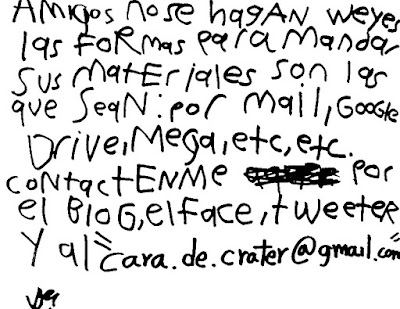 Amigos no se hagAN weyes
las FoRmas para mandar
Sus matERiales son las
que SeaN: por mail, GOOGlE
DRivE, MEga, etc, etc.
coNtactENME por
el BlOG, el Face, tWEEtER
Y al "cara.de.crater@gmail.com"